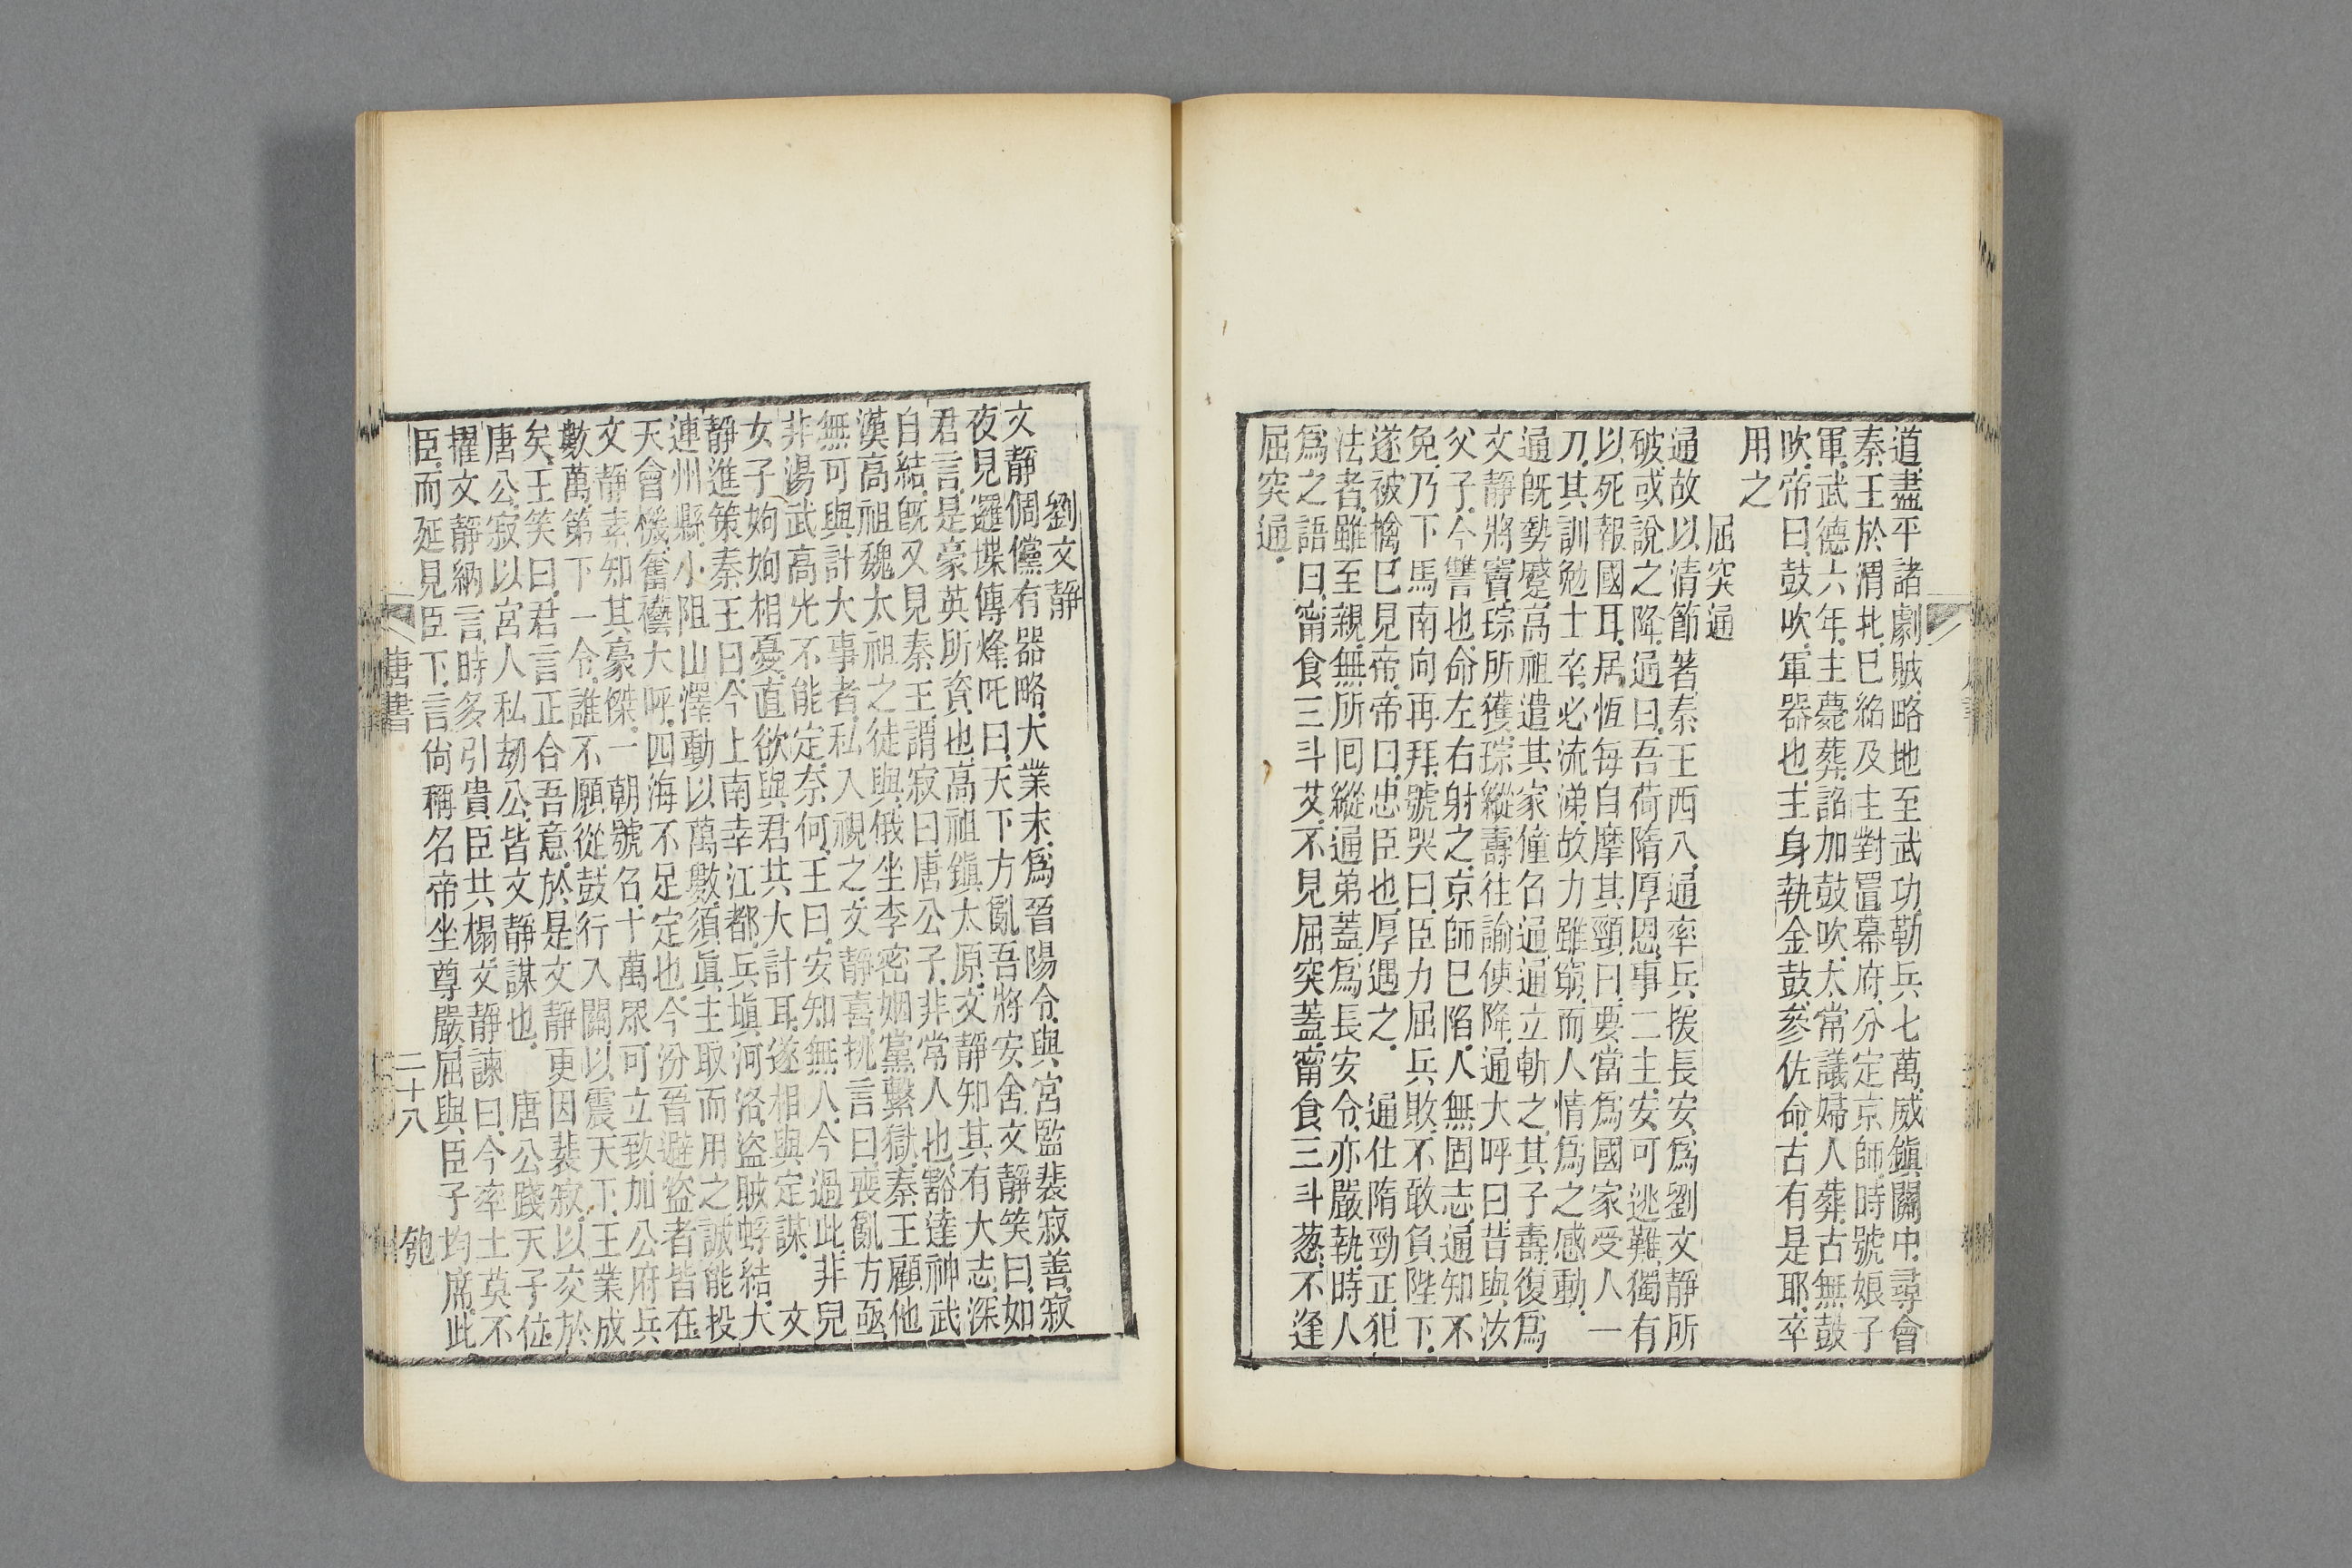 道盡平諸劇賊略地至武功勒兵七萬威鎭關中尋會
秦王於渭北巳絡及主對置幕府分定京師時號娘子
軍武德六年主薨葬詔加鼓吹太常議婦人葬古無鼓
吹帝曰鼓吹軍器也主身執金鼓參佐命古有是耶卒
用之
屈突通
通故以清節著秦王西入通率兵援長安爲劉文靜所
破或說之降通曰吾荷隋厚恩事二主安可逃難獨有
以死報國耳居恆每自摩其頸曰要當爲國家受人一
刀其訓勉士卒必流涕故力雖窮而人情爲之感動
通旣勢蹙高祖遣其家僮名通通立斬之其子壽復爲
文靜將竇琮所獲琮縱壽往諭使降通大呼曰昔與汝
父子今讐也命左右射之京師巳陷人無固志通知不
免乃下馬南向再拜號哭曰臣力屈兵敗不敢負陛下
遂被擒巳見帝帝曰忠臣也厚遇之 通仕隋勁正犯
法者雖至親無所囘縱通弟蓋爲長安令亦嚴執時人
爲之語曰甯食三斗艾不見屈突蓋甯食三斗葱不逢
屈突通
劉文靜
文靜倜儻有器略大業末爲晉陽令與宮監裴寂善寂
夜見邏堞傳烽吒曰天下方亂吾將安舍文靜笑曰如
君言是豪英所資也高祖鎭太原文靜知其有大志深
自結旣又見秦王謂寂曰唐公子非常人也豁達神武
漢高祖魏太祖之徒與俄坐李密姻黨繫獄秦王顧他
無可與計大事者私入視之文靜喜挑言曰喪亂方亟
非湯武高光不能定奈何王曰安知無人今過此非兒
女子姁姁相憂直欲與君共大計耳遂相與定謀 文
靜進策秦王曰今上南幸江都兵塡河洛盜賊蜉結大
連州縣小阻山澤動以萬數須眞主取而用之誠能投
天會機奮襼大呼四海不足定也今汾晉避盜者皆在
文靜素知其豪傑一朝號召十萬眾可立致加公府兵
數萬第下一令誰不願從鼓行入關以震天下王業成
矣王笑曰君言正合吾意於是文靜更因裴寂以交於
唐公寂以宮人私刼公皆文靜謀也 唐公踐天子位
擢文靜納言時多引貴臣共榻文靜諫曰今率土莫不
臣而延見臣下言尙稱名帝坐尊嚴屈與臣子均席此
唐書 二十八